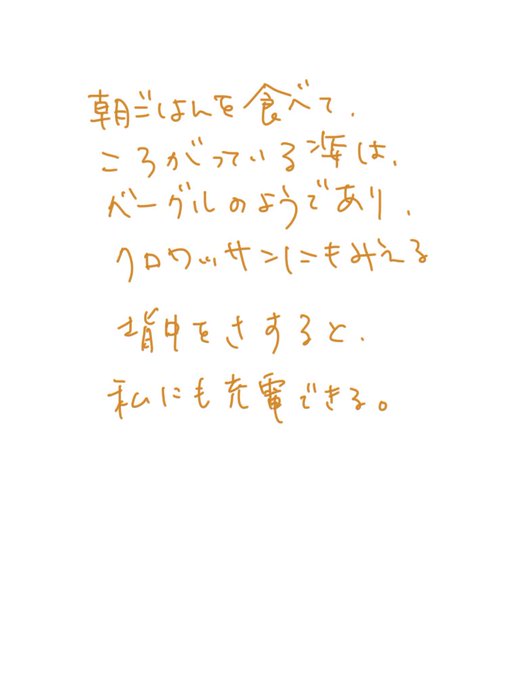 朝ごはんを食べて、
ころがっている姿は、
ベーグルのようであり、
クロワッサンにもみえる
背中をさすると、
私にも充電できる。